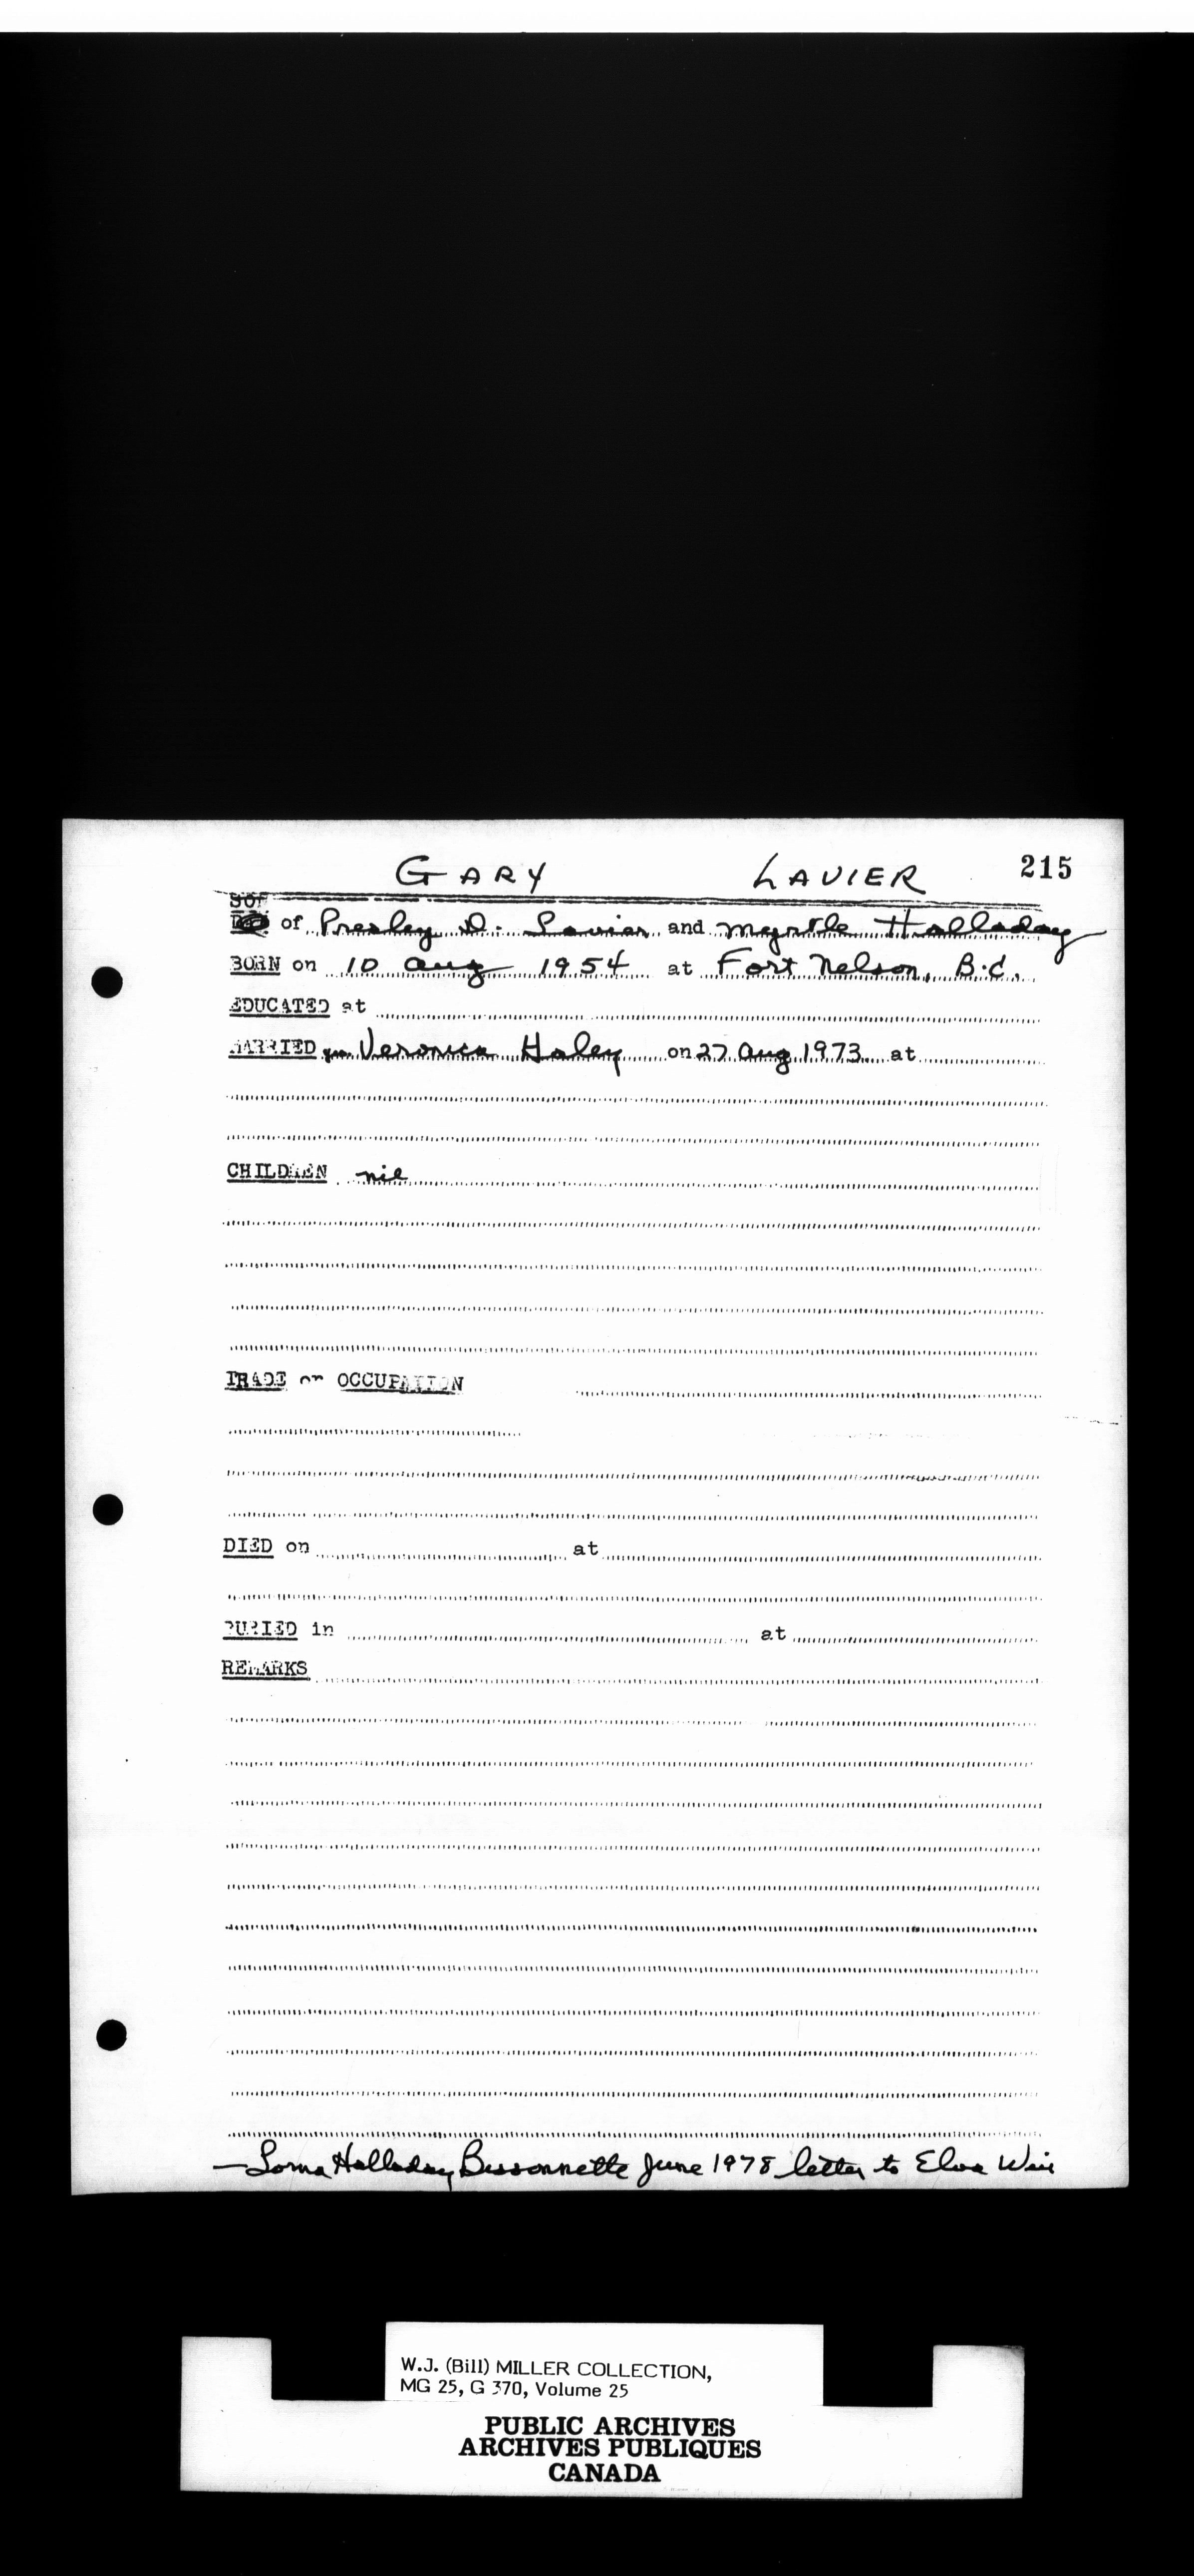 GARY LAVIER 215
SON
of Presley D. Lavier and Myrtle Halladay
BORN on 10 Aug 1954 at Fort Nelson, B.C.
EDUCATED at
MARRIED Veronica Haley on 27 Aug 1973 at
CHILDREN nil
TRADE or OCCUPATION
DIED on at
BURIED in at
REMARKS
— Lorna Halladay Bissonnette June 1978 letter to Elva Weir
W.J. (Bill) MILLER COLLECTION,
MG 25, G 370, Volume 25
PUBLIC ARCHIVES
ARCHIVES PUBLIQUES
CANADA